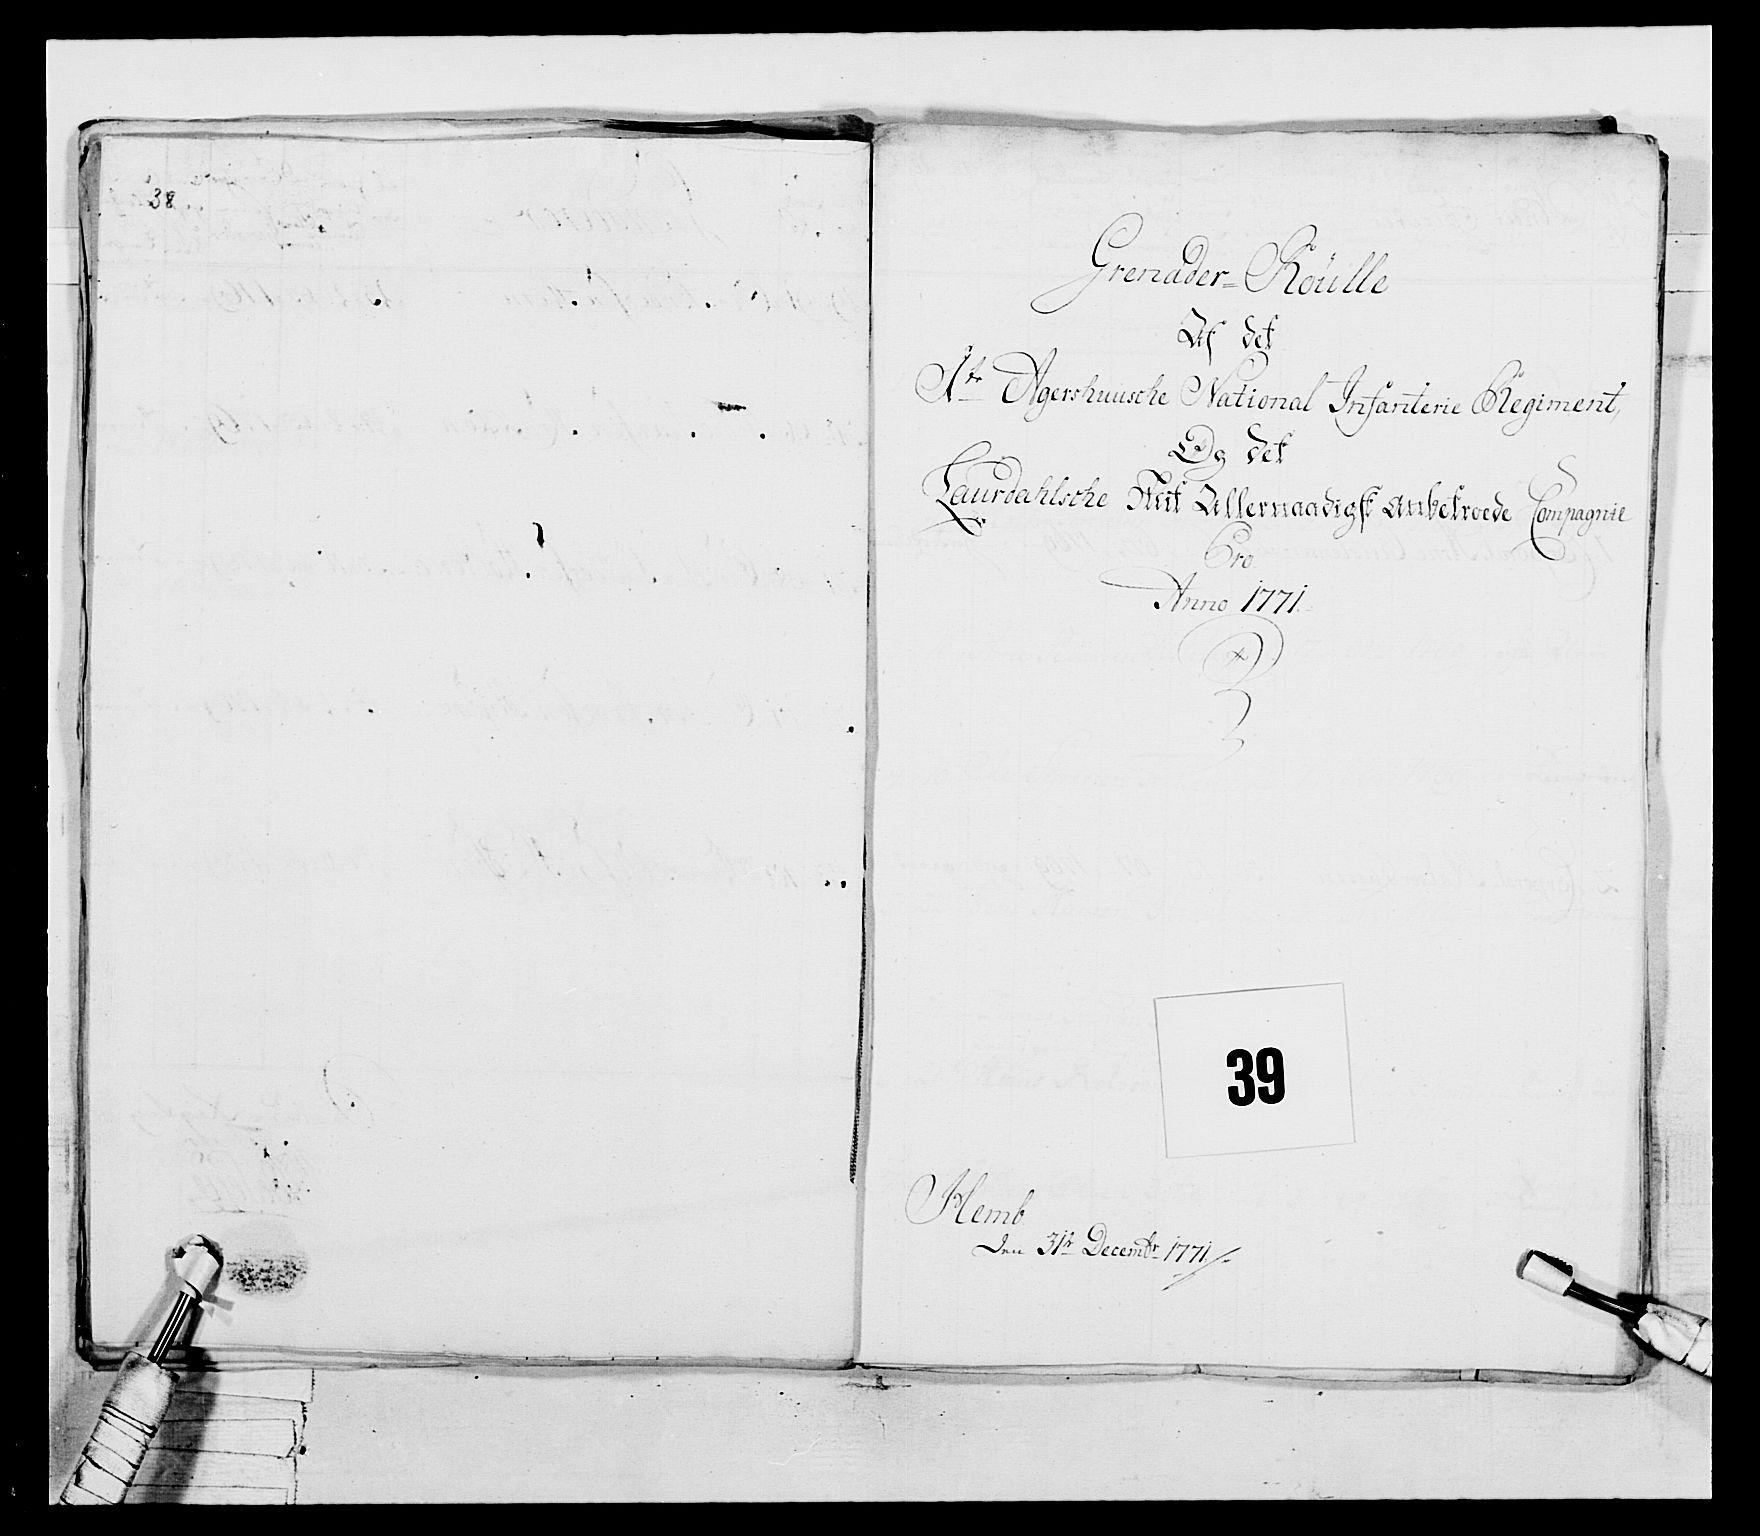 38.
Grenader-Roülle
Af det
1te Agershuusche National Infanterie Regiment,
Og det
Laurdahlsche Mit Allernaadigst anbetroede Compagnie
Pro
Anno 1771.
39
Hemb
den 31te Decembr 1771